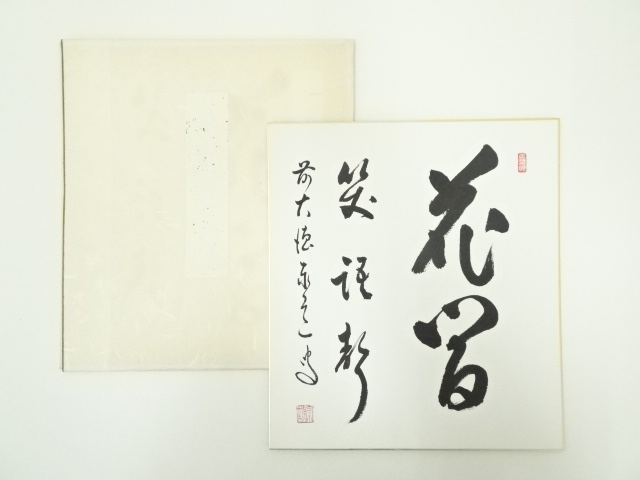 花間
笑語聲
前大徳